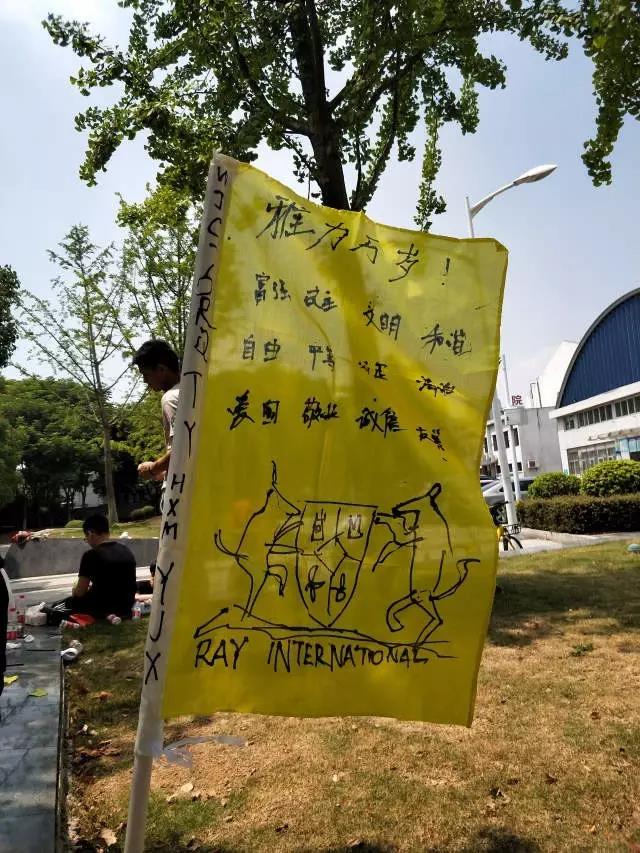 雅力万岁！
富强 民主 文明 和谐
自由 平等 公正 法治
爱国 敬业 诚信 友善
RAY INTERNATIONAL
HXM YYJX
院